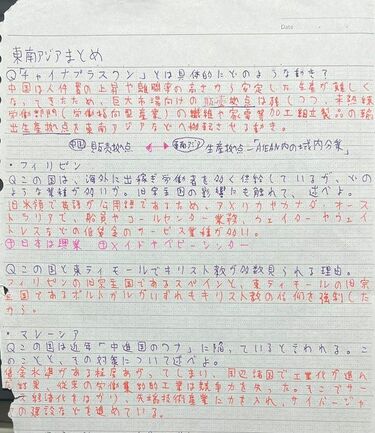 Date
東南アジアまとめ
Q「チャイナプラスワン」とは具体的にどのような動き?
中国は人件費の上昇や離職率の高さから安定した生産が難しく
なってきたため、巨大市場向けの販売拠点は残しつつ、未熟練
労働部門(労働指向型産業)の繊維や家電業の加工組立製品の輸
出生産拠点を東南アジアなどへ移転させる動き。
中国 販売拠点 ⟷ 東南アジア 生産拠点-「ASEAN内の域内分業」
・フィリピン
Qこの国は、海外に出稼ぎ労働者を多く供給しているが、どの
ような業種が多いか。旧宗主国の影響にも触れて、述べよ。
旧米領で英語が公用語であるため、アメリカやカナダ、オース
トラリアで、船員やコールセンター業務、ウェイターやウェイ
トレスなどの低賃金のサービス業種が多い。
日本は興業 メイドやベビーシッター
Qこの国と東ティモールでキリスト教が多数見られる理由。
フィリピンの旧宗主国であるスペインと、東ティモールの旧宗
主国であるポルトガルがいずれもキリスト教の信仰を強制した
から。
・マレーシア
Qこの国は近年「中進国のワナ」に陥っていると言われる。こ
のことと、その対策について述べよ。
賃金水準がある程度あがってしまい、周辺諸国で工業化が進ん
だ結果、従来の労働集約的工業は競争力を失った。そこでサー
ビス経済化をはかり、先端技術産業に力を入れ、サイバージャ
ヤの建設などを進めている。